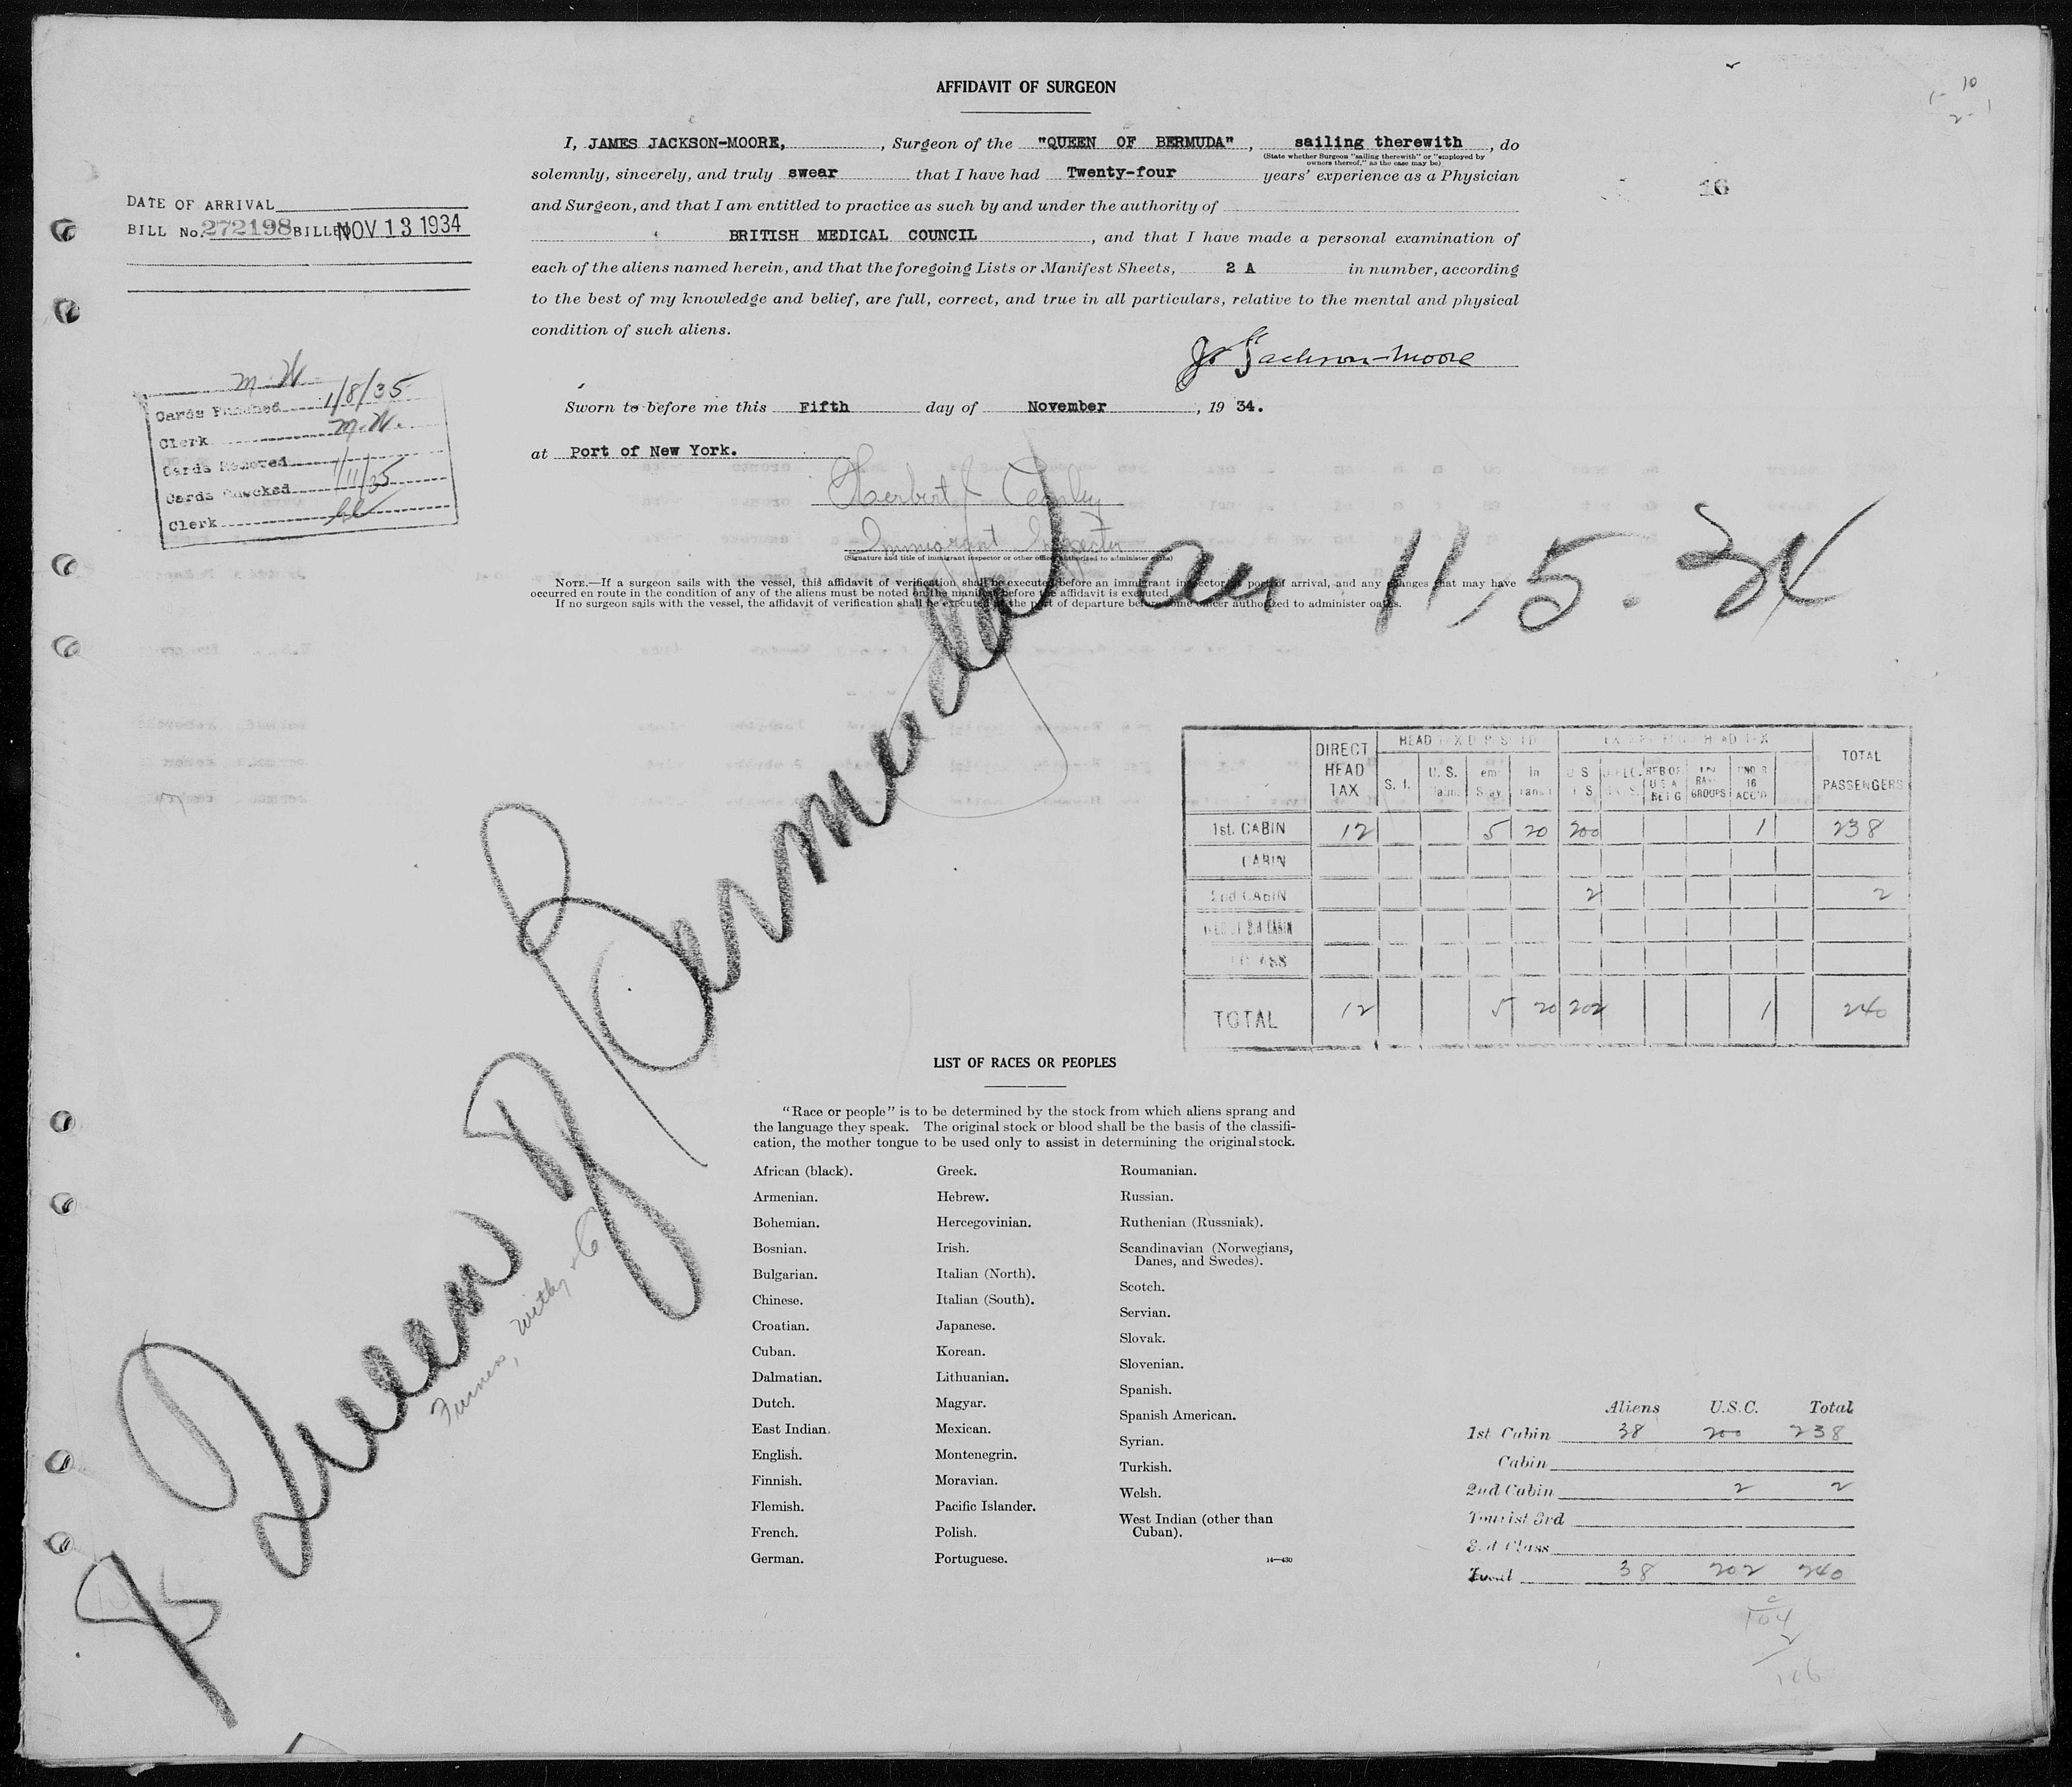 AFFIDAVIT OF SURGEON
I, JAMES JACKSON-MOORE, , Surgeon of the "QUEEN OF BERMUDA" , sailing therewith , do
(State whether Surgeon "sailing therewith" or "employed by
owners thereof," as the case may be)
solemnly, sincerely, and truly swear that I have had Twenty-four years' experience as a Physician
and Surgeon, and that I am entitled to practice as such by and under the authority of
BRITISH MEDICAL COUNCIL , and that I have made a personal examination of
each of the aliens named herein, and that the foregoing Lists or Manifest Sheets, 2 A in number, according
to the best of my knowledge and belief, are full, correct, and true in all particulars, relative to the mental and physical
condition of such aliens.
J. Jackson-Moore
Sworn to before me this Fifth day of November , 19 34.
at Port of New York.
Herbert
Immigrant Inspector
(Signature and title of immigrant inspector or other officer authorized to administer oaths)
NOTE.—If a surgeon sails with the vessel, this affidavit of verification shall be executed before an immigrant inspector at port of arrival, and any changes that may have
occurred en route in the condition of any of the aliens must be noted on the manifest before the affidavit is executed.
If no surgeon sails with the vessel, the affidavit of verification shall be executed at the port of departure before some officer authorized to administer oaths.
DATE OF ARRIVAL
BILL No. 272198 BILLED NOV 13 1934
M.W.
Cards Punched 1/8/35
Clerk M.W.
Cards Removed
Cards Checked 1/11/35
Clerk
16
1- 10
2-1
SS Queen of Bermuda arr 11, 5. 34
Furness, Withy & Co
DIRECT HEAD TAX S. I. U. S. in TOTAL PASSENGERS
1st. CABIN 12 5 20 200 1 238
CABIN
2nd CABIN 2 2
TOTAL 12 5 20 202 1 240
LIST OF RACES OR PEOPLES
"Race or people" is to be determined by the stock from which aliens sprang and
the language they speak. The original stock or blood shall be the basis of the classifi-
cation, the mother tongue to be used only to assist in determining the original stock.
African (black).
Armenian.
Bohemian.
Bosnian.
Bulgarian.
Chinese.
Croatian.
Cuban.
Dalmatian.
Dutch.
East Indian.
English.
Finnish.
Flemish.
French.
German.
Greek.
Hebrew.
Hercegovinian.
Irish.
Italian (North).
Italian (South).
Japanese.
Korean.
Lithuanian.
Magyar.
Mexican.
Montenegrin.
Moravian.
Pacific Islander.
Polish.
Portuguese.
Roumanian.
Russian.
Ruthenian (Russniak).
Scandinavian (Norwegians,
Danes, and Swedes).
Scotch.
Servian.
Slovak.
Slovenian.
Spanish.
Spanish American.
Syrian.
Turkish.
Welsh.
West Indian (other than
Cuban).
14—430
Aliens U.S.C. Total
1st Cabin 38 200 238
Cabin
2nd Cabin 2 2
Tourist 3rd
3rd Class
Total 38 202 240
104
2
106